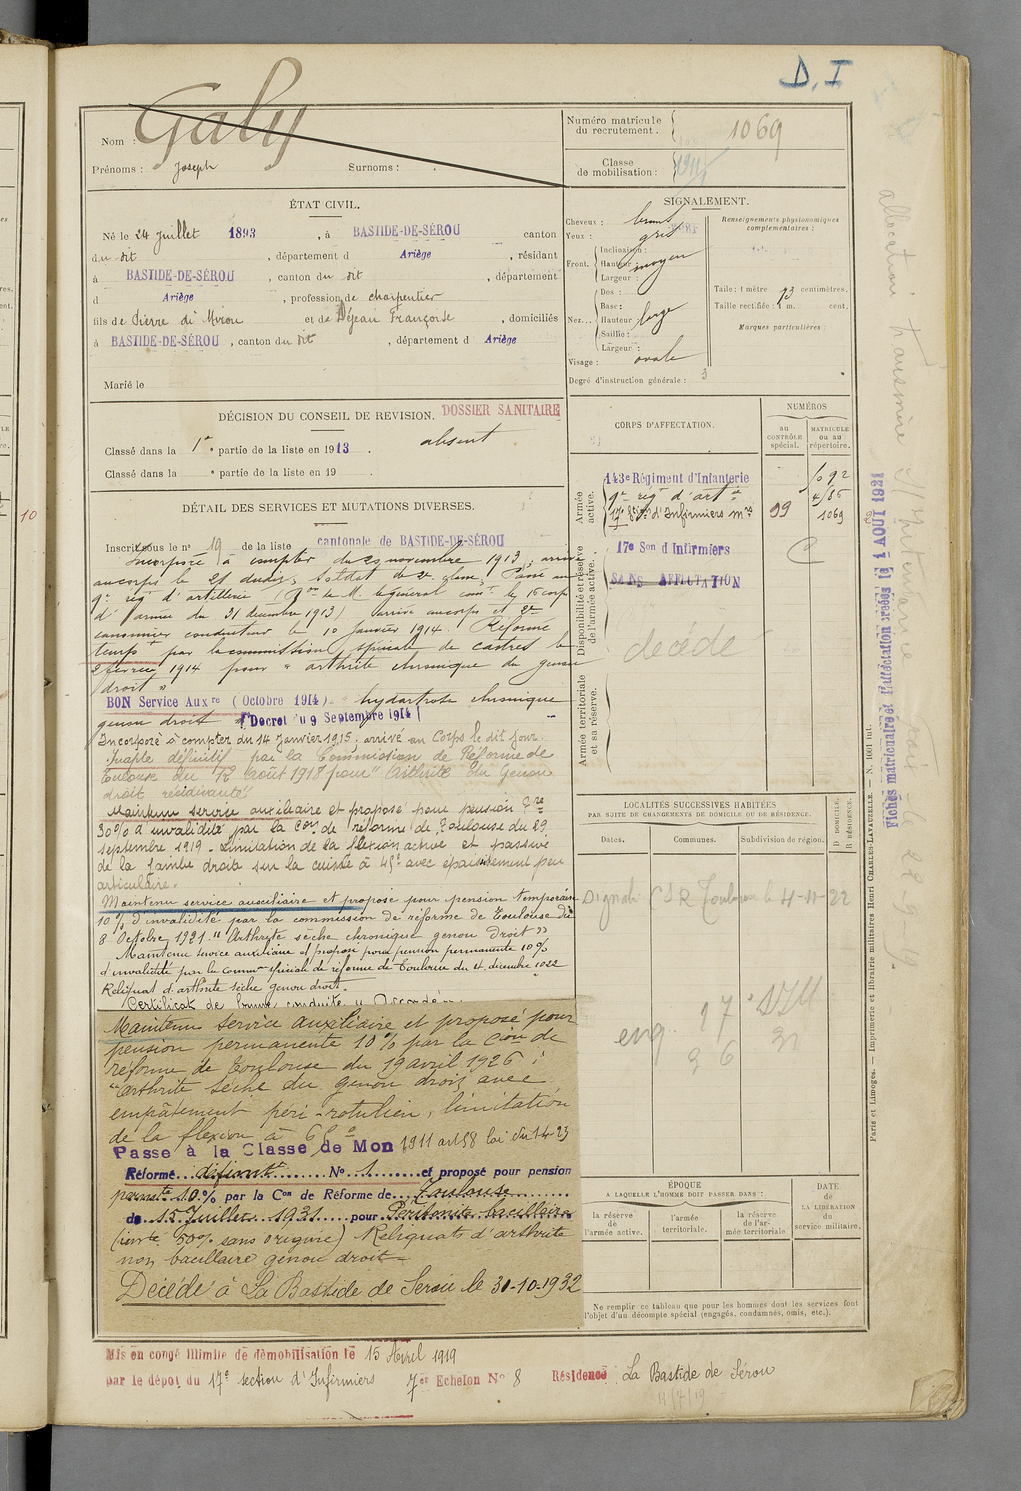 D. I
Nom : Galy
Prénoms : Joseph Surnoms :
Numéro matricule du recrutement. 1069
Classe de mobilisation :
ÉTAT CIVIL.
Né le 24 Juillet 1893, à BASTIDE-DE-SÉROU canton
du dit, département d Ariège, résidant
à BASTIDE-DE-SÉROU, canton du dit, département
d Ariège, profession de charpentier
fils de Pierre et de Déjean Françoise, domiciliés
à BASTIDE-DE-SÉROU, canton du dit, département d Ariège
Marié le
SIGNALEMENT.
Cheveux : bruns
Yeux : gris
Front. Inclinaison :
Hauteur : moyen
Largeur :
Nez... Dos :
Base :
Hauteur large
Saillie :
Largeur :
Visage : ovale
Renseignements physionomiques complémentaires :
Taille : 1 mètre 73 centimètres.
Taille rectifiée : 1 m. cent.
Marques particulières :
Degré d'instruction générale : 3
DÉCISION DU CONSEIL DE REVISION. DOSSIER SANITAIRE
absent
Classé dans la 1re partie de la liste en 1913.
Classé dans la partie de la liste en 19
DÉTAIL DES SERVICES ET MUTATIONS DIVERSES.
Inscrit sous le n° 19 de la liste cantonale de BASTIDE-DE-SÉROU
Incorporé à compter du 29 novembre 1913, arrivé
au corps le dudit, soldat de 2e classe. Passé au
9e reg. d'artillerie le Gl général com. le 16e corps
d'armée du 31 decembre 1913) arrivé au corps et 2e
canonnier conducteur le 10 Janvier 1914. Réformé
temps. par la commission spéciale de Castres le
2 février 1914 pour "arthrite chronique du genou
droit"
BON Service Auxre (Octobre 1914). hydarthrose chronique
genou droit (Decret du 9 Septembre 1914)
Incorporé à compter du 14 Janvier 1915. arrivé au Corps le dit jour.
Inapte définitif par la Commission de Réforme de
Toulouse du 12 Août 1918 pour "Arthrite du Genou
droit récidivante"
Maintenu service auxiliaire et proposé pour pension
30% d'invalidité par la Con de réforme de Toulouse du 29
septembre 1919 - Limitation de la flexion active et passive
de la jambe droite sur la cuisse à 45° avec épaississement peri
articulaire.
Maintenu service auxiliaire et proposé pour pension temporaire
10% d'invalidité par la commission de réforme de Toulouse du
8 Octobre 1921. "Arthrite sèche chronique genou droit"
Maintenu service auxiliaire et proposé pour pension permanente 10%
d'invalidité par la common spéciale de réforme de Toulouse du 4 décembre 1922
Reliquat d'arthrite sèche genou droit.
Certificat de bonne conduite "Accordé".
Maintenu service auxiliaire et proposé pour
pension permanente 10% par la Con de
réforme de Toulouse du 19 avril 1926 :
"arthrite sèche du genou droit avec
empâtement péri-rotulien, limitation
de la flexion à
Passé à la Classe de Mon 1911 art 58 loi du 1-4-23
Réformé définit N° 1 et proposé pour pension
permte 10% par la Con de Réforme de Toulouse
de 15 Juillet 1931 pour Peritonite bacillaire
(invté 50% sans origine) Reliquats d'arthrite
non bacillaire genou droit
Décédé à La Bastide de Serou le 30-10-1932
Mis en congé illimité de démobilisation le 15 Avril 1919
par le dépot du 17e section d'Infirmiers 7e Echelon N° 8 Résidence La Bastide de Sérou
CORPS D'AFFECTATION.
NUMÉROS
au CONTRÔLE spécial.
MATRICULE ou au répertoire.
Armée active.
143e Régiment d'Infanterie 1092
9e regt d'artie 4186
17e Son d'Infirmiers mres 99 1069
Disponibilité et réserve de l'armée active.
17e Son d Infirmiers
SANS AFFECTATION
décédé
Armée territoriale et sa réserve.
LOCALITÉS SUCCESSIVES HABITÉES
PAR SUITE DE CHANGEMENTS DE DOMICILE OU DE RÉSIDENCE.
Dates. Communes. Subdivision de région. D. DOMICILE. R. RÉSIDENCE.
Toulouse le 4-11-22
17
ÉPOQUE
A LAQUELLE L'HOMME DOIT PASSER DANS :
la réserve de l'armée active.
l'armée territoriale.
la réserve de l'armée territoriale
DATE de LA LIBÉRATION du service militaire.
Ne remplir ce tableau que pour les hommes dont les services font
l'objet d'un décompte spécial (engagés, condamnés, omis, etc.).
Paris et Limoges. — Imprimerie et librairie militaires Henri CHARLES-LAVAUZELLE. — N. 1001 int.
Fiches matriculaire et d'affectation créées le 1 AOUT 1921
10